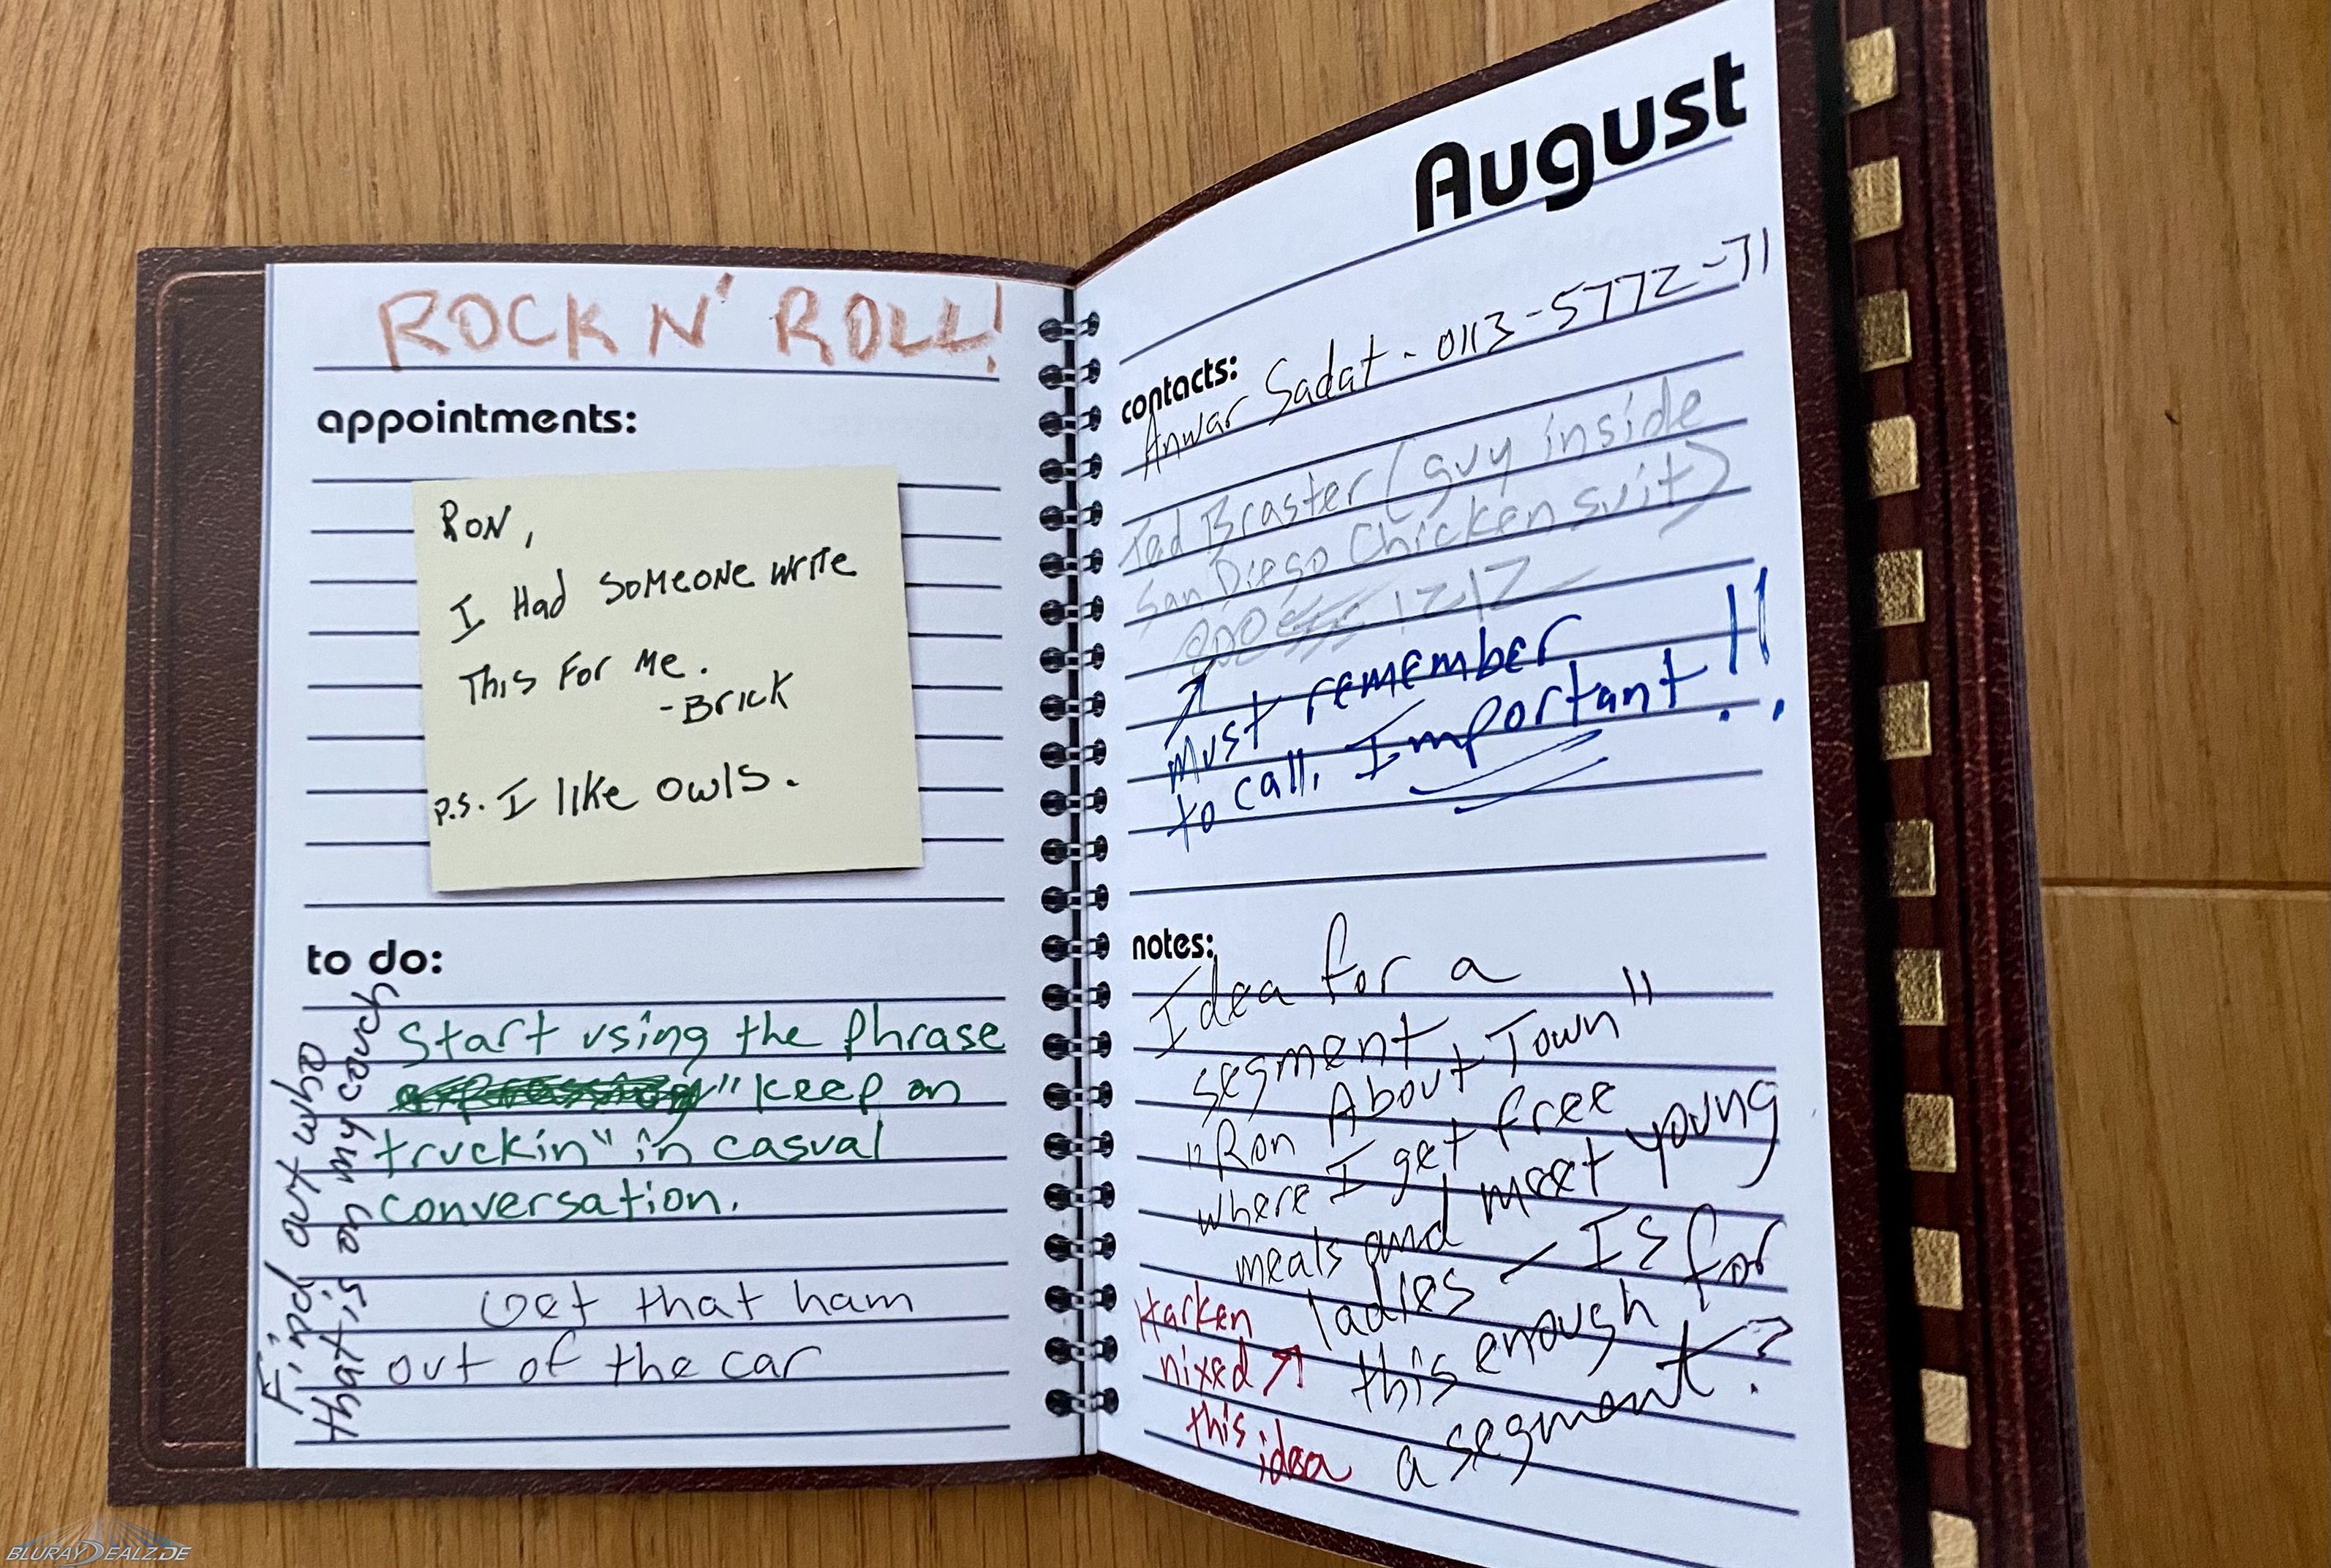 ROCK N' ROLL!
appointments:
RON,
I Had someone write
This for me.
-Brick
P.S. I like owls.
to do:
Find out who
that is on my couch
Start using the phrase
"keep on
truckin" in casual
conversation.
Get that ham
out of the car
August
contacts:
Anwar Sadat - 0113-5772-71
Tad Braster (guy inside
San Diego Chicken suit)
1212
Must remember
to call. Important!!
notes:
Idea for a
segment
"Ron About Town"
where I get free
meals and meet young
ladies - Is for
this enough
a segment?
Harken
nixed
this
idea
BLURAYDEALZ.DE